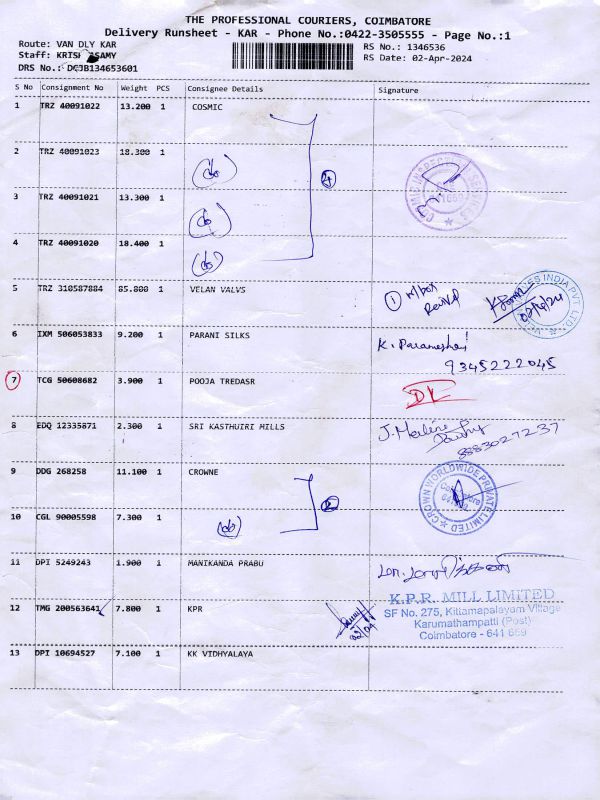 THE PROFESSIONAL COURIERS, COIMBATORE
Delivery Runsheet - KAR - Phone No.:0422-3505555 - Page No.:1
Route: VAN DLY KAR
RS No.: 1346536
Staff: KRISH ASAMY
RS Date: 02-Apr-2024
DRS No.: DCJB134653601
S No Consignment No Weight PCS Consignee Details Signature
1 TRZ 40091022 13.200 1 COSMIC
2 TRZ 40091023 18.300 1
3 TRZ 40091021 13.300 1
4 TRZ 40091020 18.400 1
5 TRZ 310587884 85.800 1 VELAN VALVS
6 IXM 506053833 9.200 1 PARANI SILKS
K. Parameshai
9345222045
7 TCG 50608682 3.900 1 POOJA TREDASR
DL
8 EDQ 12335871 2.300 1 SRI KASTHUIRI MILLS
8883027237
9 DDG 268258 11.100 1 CROWNE
CROWN WORLDWIDE PRIVATE LIMITED
10 CGL 90005598 7.300 1
11 DPI 5249243 1.900 1 MANIKANDA PRABU
12 TMG 200563641 7.800 1 KPR
K.P.R. MILL LIMITED
SF No. 275, Kittampalayam Village
Karumathampatti (Post)
Coimbatore - 641 659
13 DPI 10694527 7.100 1 KK VIDHYALAYA